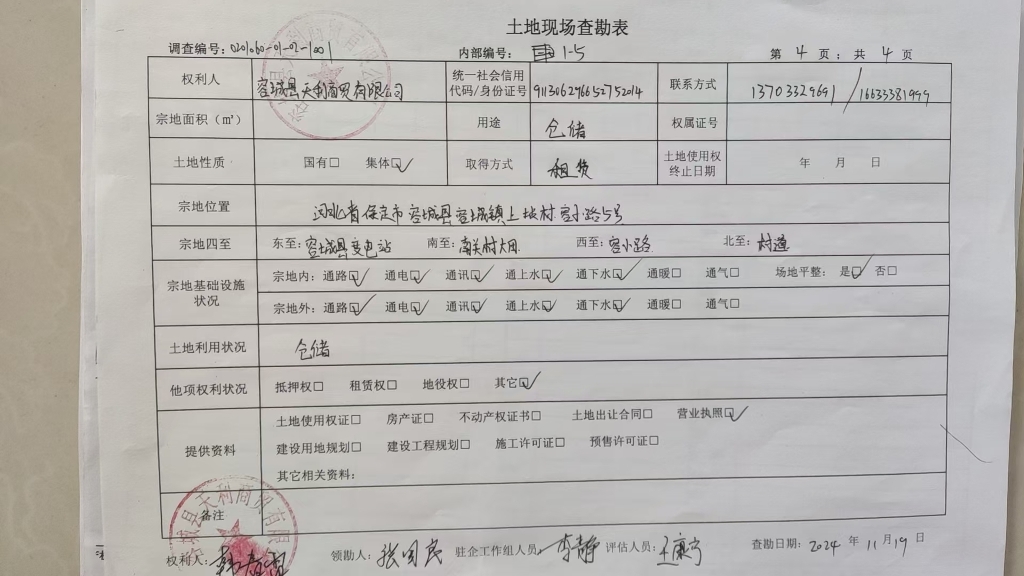 土地现场查勘表
调查编号：020160-01-02-1001 内部编号： 1-5 第 4 页：共 4 页
权利人 容城县天利商贸有限公司 统一社会信用代码/身份证号 联系方式 13703329691 / 16633381999
宗地面积（㎡） 用途 仓储 权属证号
土地性质 国有□ 集体☑ 取得方式 租赁 土地使用权终止日期 年 月 日
宗地位置 河北省保定市容城县容城镇上坡村容小路5号
宗地四至 东至：容城县变电站 南至：南关村大田 西至：容小路 北至：村道
宗地基础设施状况 宗地内：通路☑ 通电☑ 通讯☑ 通上水☑ 通下水☑ 通暖□ 通气□ 场地平整：是☑ 否□
宗地外：通路☑ 通电☑ 通讯☑ 通上水☑ 通下水☑ 通暖□ 通气□
土地利用状况 仓储
他项权利状况 抵押权□ 租赁权□ 地役权□ 其它☑
提供资料 土地使用权证□ 房产证□ 不动产权证书□ 土地出让合同□ 营业执照☑
建设用地规划□ 建设工程规划□ 施工许可证□ 预售许可证□
其它相关资料：
备注
容城县天利商贸有限
权利人： 领勘人：张国民 驻企工作组人员：李静 评估人员：王康宁 查勘日期：2024 年 11 月 19 日